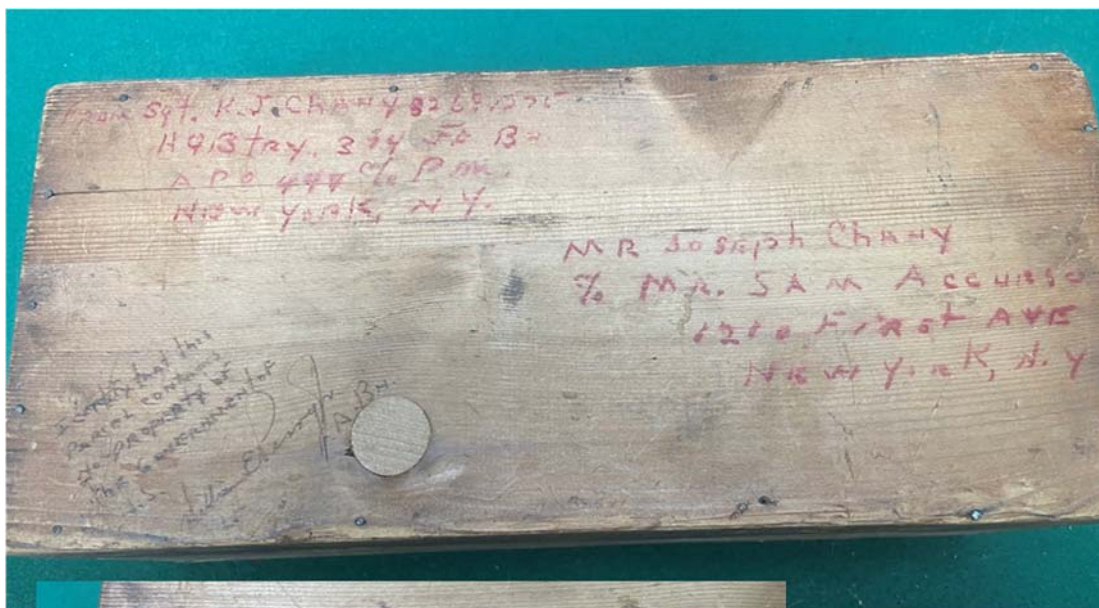 From Sgt. K.J. Chany
HQ Btry. 394 FA Bn
APO 447 % P.M.
New York, N.Y.
MR Joseph Chany
% MR. SAM Accurso
1210 First AVE
New York, N.Y
I certify that this
Parcel contains
No property of
the Government of
U.S.